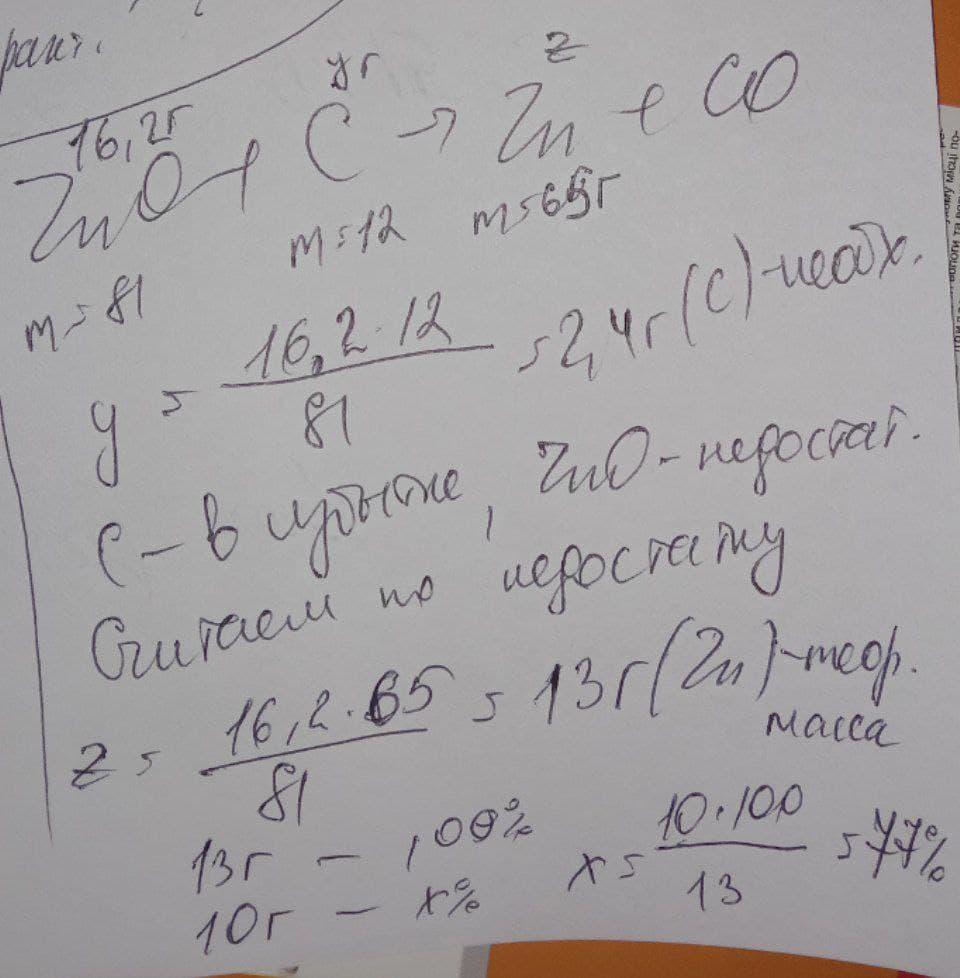 16,2г yг z
ZnO + C → Zn + CO
m = 81 m = 12 m = 65г
y = 16,2 · 12 / 81 = 2,4г (C) - необх.
C - в избытке, ZnO - недостат.
Считаем по недостатку
z = 16,2 · 65 / 81 = 13г (Zn) - теор. масса
13г - 100%
10г - x% x = 10 · 100 / 13 = 77%